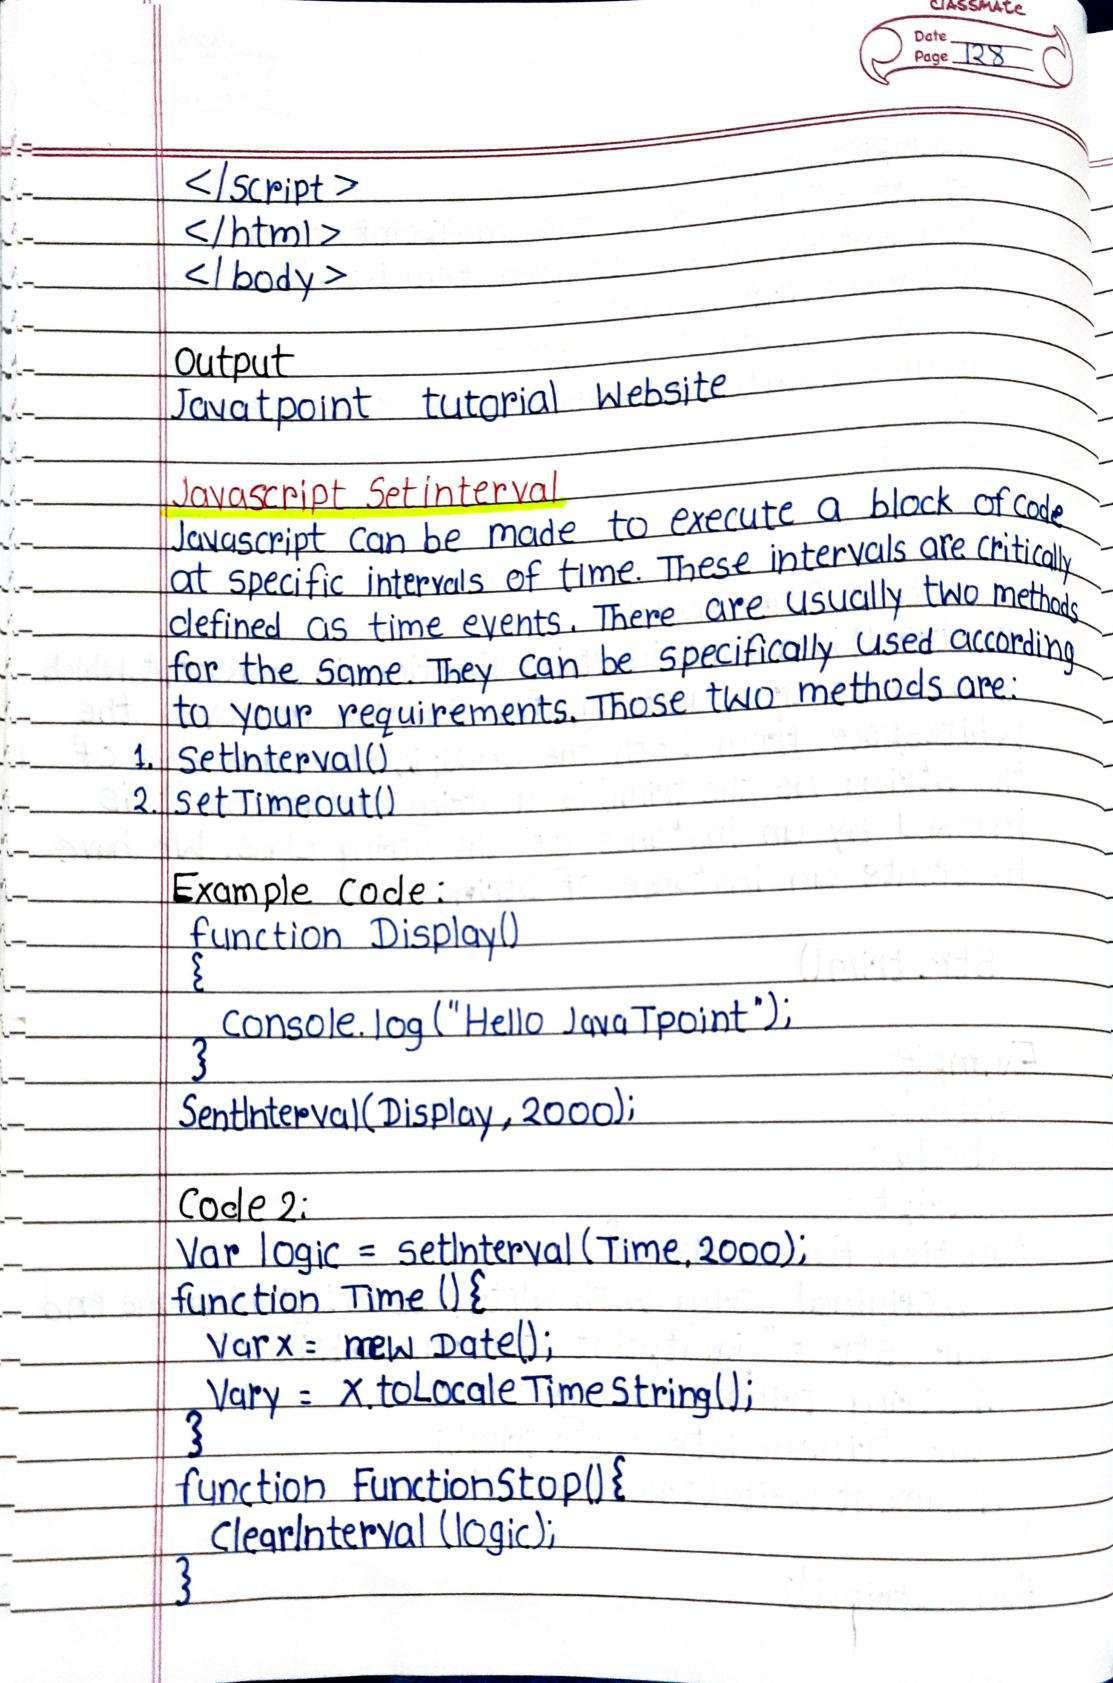 CLASSMATE
Date
Page 128
</script>
</html>
</body>
Output
Javatpoint tutorial Website
Javascript Setinterval
Javascript can be made to execute a block of code
at specific intervals of time. These intervals are critically
defined as time events. There are usually two methods
for the same. They can be specifically used according
to your requirements. Those two methods are:
1. SetInterval()
2. SetTimeout()
Example Code:
function Display()
{
Console.log("Hello JavaTpoint");
}
SentInterval(Display, 2000);
Code 2:
Var logic = setInterval(Time, 2000);
function Time (){
Var x = new Date();
Var y = x.toLocaleTimeString();
}
function FunctionStop(){
ClearInterval (logic);
}